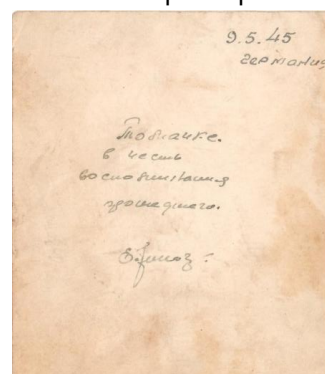 9.5.45
Германия
в честь
воспоминания
прошедшего.